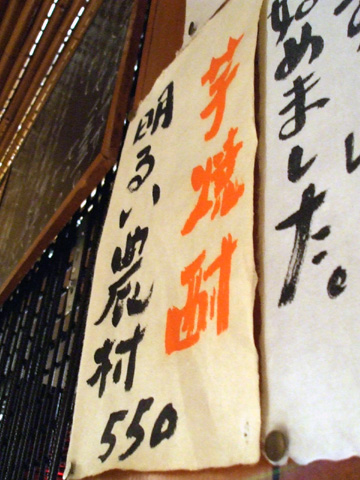 始めました。
芋焼酎
明るい農村
550